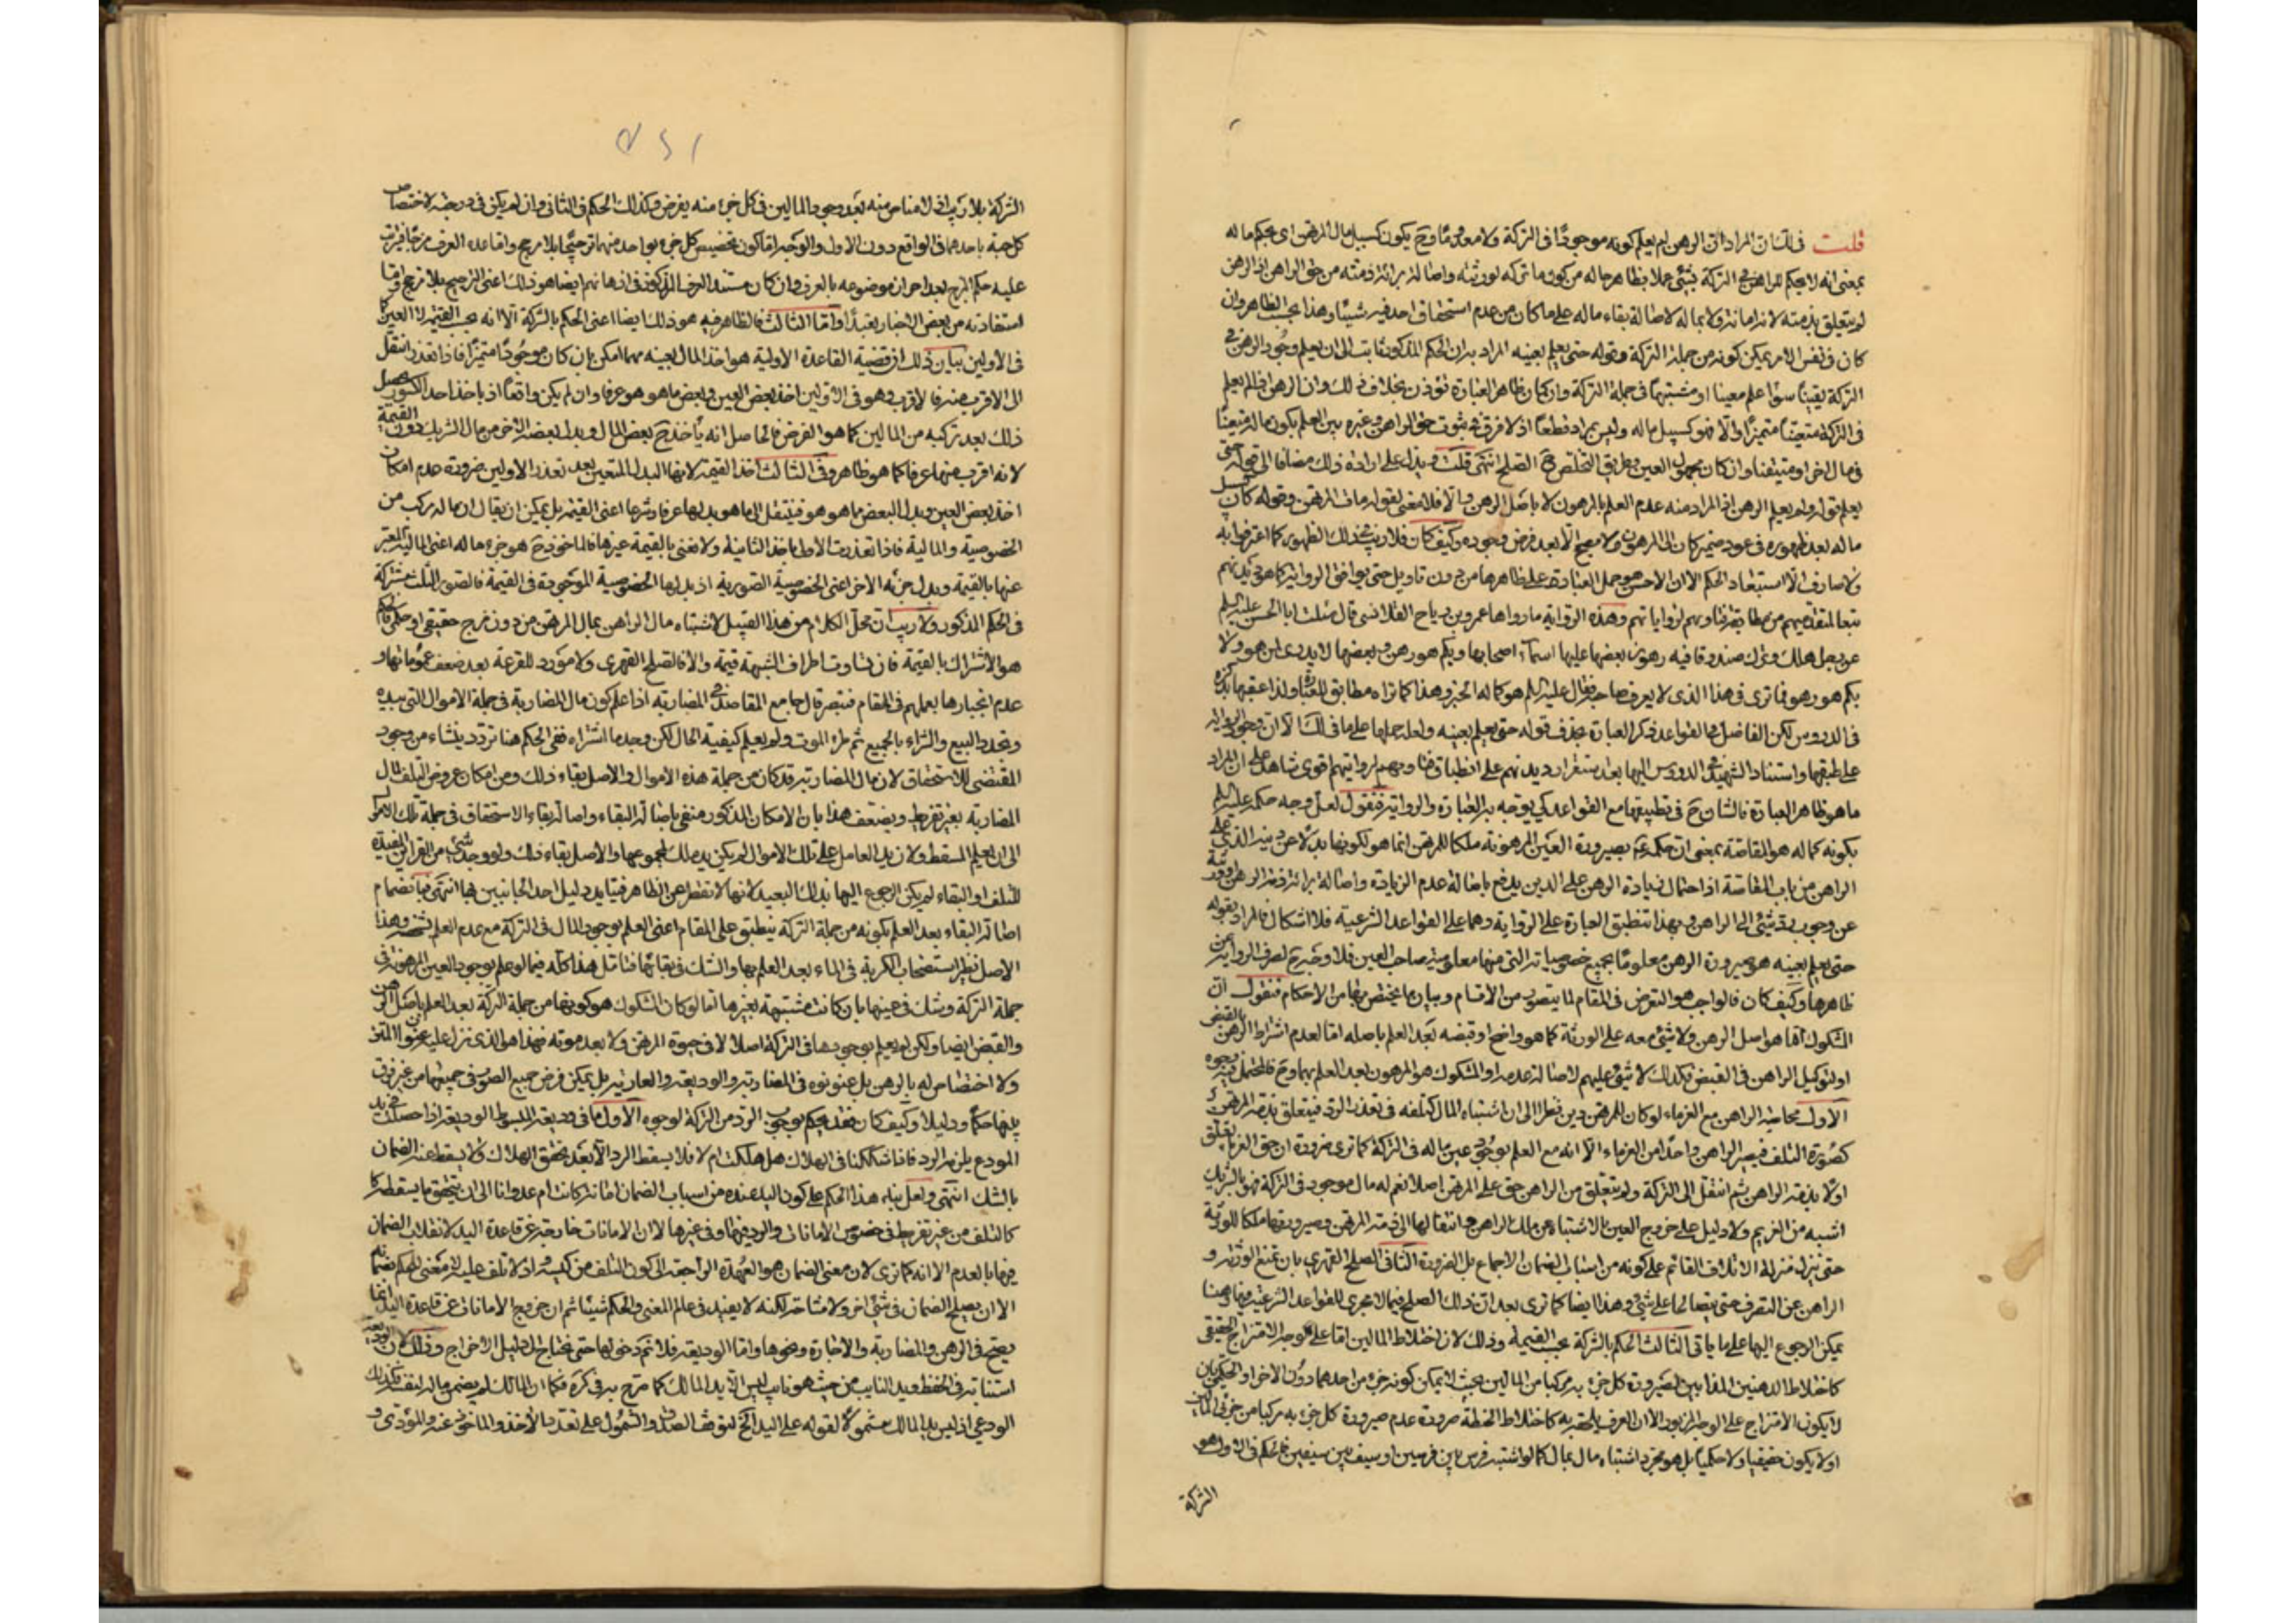 قلت في لك ان المراد ان الرهن لم يعلم كونه موجودًا في التركة ولا معدومًا وح يكون كسبيل مال المرتهن اى يحكم ما له
بمعنى انه لا يحكم للراهن في التركة بشئ عملا بظاهر حاله من كون ما تركه لورثته واصالة برائة ذمته من حق الراهن اذ الرهن
لم يتعلق بذمته لانه امانة ولا بماله لاصالة بقاء ماله على ما كان من عدم استحقاق احد فيه شيئًا وهذا بحسب الظاهر وان
كان في نفس الامر يمكن كونه من جملة التركة وقوله حتى يعلم بعينه المراد به ان الحكم المذكور ثابت الى ان يعلم وجود الرهن في
التركة يقينًا سواء علم معينا او مشتبها في جملة التركة وان كان ظاهر العبارة تؤذن بخلاف ذلك وان الرهن اذا لم يعلم
في التركة متعينًا متميزًا والا فهو كسبيل ماله وليس بمراد قطعًا اذ لا فرق في ثبوت حق الراهن وغيره بين العلم بكون ماله متعينًا
في مال اخر او متيقنا وان كان مجهول العين وطريق التخلص ح الصلح انتهى قلت ويدل على ارادة ذلك مضافا الى قوله حتى
يعلم قوله ولم يعلم الرهن اذ المراد منه عدم العلم بالمرهون لا باصل الرهن والا فلا معنى لقوله مات المرتهن وقوله كان كسبيل
ماله بعد ظهوره في عود ضمير كان الى المرهون ولا يصح الا بعد فرض وجوده وكيف كان فلا ريب في ذلك الظهور كما اعترفوا به
ولا صارف الا استبعاد الحكم الا ان الاحسن هو حمل العبارة على ظاهرها من دون تاويل حتى يوافق الرواية كما هو ديدنهم
تبعا لمتقدميهم من مطابقة فتاويهم لرواياتهم وهذه الرواية ما رواها عمرو بن رياح القلانسى قال سئلت ابا الحسن عليه السلم
عن رجل هلك وترك صندوقا فيه رهون بعضها عليها اسماء اصحابها وبكم هو رهن وبعضها لا يدرى لمن هو ولا
بكم هو رهن فما ترى في هذا الذى لا يعرف صاحبه فقال عليه السلم هو كماله الخبر وهذا كما تراه مطابق للعبارة ولذا عقبها بذكره
في الدروس لكن الفاضل في القواعد ذكر العبارة بحذف قوله حتى يعلم بعينه ولعله حملها على ما في لك الا ان وجود الرواية
على طبقها واستناد الشهيد في الدروس اليها بعد استقرار ديدنهم على انطباق فتاويهم لرواياتهم اقوى شاهد على ان المراد
ما هو ظاهر العبارة فالشان ح في تطبيقها مع القواعد كى يوجه به العبارة والرواية فنقول لعل وجه حكمه عليه السلم
بكونه كماله هو المقاصة بمعنى ان حكمه بصيرورة العين المرهونة ملكا للمرتهن انما هو لكونها بدلا عن دينه الذى على
الراهن من باب المقاصة اذ احتمال زيادة الرهن على الدين يدفع باصالة عدم الزيادة واصالة برائة ذمة المرتهن وورثته
عن وجوب رد شئ الى الراهن وبهذا تنطبق العبارة على الرواية وهما على القواعد الشرعية فلا اشكال فالمراد بقوله
حتى يعلم بعينه هو صيرورة الرهن معلومًا بجميع خصوصياته التى منها معلومية صاحب العين فلا وجه ح لصرف الرواية عن
ظاهرها وكيف كان فالواجب هو التعرض في المقام لما يتصور من الاقسام وبيان ما يختص بها من الاحكام فنقول ان
المشكوك اما هو اصل الرهن ولا شئ معه على الورثة كما هو واضح او قبضه بعد العلم باصله اما لعدم اشتراط الرهن بالقبض
او لتوكيل الراهن في القبض فكذلك لا شئ عليهم لاصالة عدمه او المشكوك هو المرهون بعد العلم بهما وح فالمحتمل فيه وجوه
الاول محاصة الراهن مع الغرماء لو كان للمرتهن دين نظرا الى ان اشتباه المال كتلفه في تعذر الرد فيتعلق بذمة المرتهن
كصورة التلف فيصير الراهن واحدًا من الغرماء الا انه مع العلم بوجود عين ماله في التركة كما ترى ضرورة ان حق الغرماء تعلق
اولا بذمة الراهن ثم انتقل الى التركة ولم يتعلق من الراهن حق على المرتهن اصلا نعم له مال موجود في التركة فهو بالشريك
اشبه من الغريم ولا دليل على خروج العين بالاشتباه عن ملك الراهن وانتقالها الى ذمة المرتهن وصيرورتها ملكا للورثة
حتى ينزل منزلة الاتلاف القائم على كونه من اسباب الضمان الاجماع بل الضرورة الثانى الصلح القهرى بان تمنع الورثة و
الراهن عن التصرف حتى يتصالحا على شئ وهذا ايضا كما ترى بعد ان ذلك الصلح فيما لا مجرى للقواعد الشرعية فيه وهنا
يمكن الرجوع اليها على ما ياتى الثالث الحكم بالشركة بحسب القيمة وذلك لان اختلاط المالين اما على وجه الامتزاج الحقيقى
كاختلاط الدهنين المذابين لصيرورة كل جزء به مركبا من المالين بحيث لا يمكن كونه جزء من احدهما دون الاخر او الحكمى بان
لا يكون الامتزاج على الوجه المزبور الا ان العرف يلحقه به كاختلاط الحنطة ضرورة عدم صيرورة كل جزء به مركبا من جزئى المالين
او لا يكون حقيقيا ولا حكميا بل هو مجرد اشتباه مال بمال كما لو اشتبه فرس بين فرسين او سيف بين سيفين فالحكم في الاول هو
الشركة
الشركة بلا ريب اذ لا مناص منه بعد وجود المالين في كل جزء منه يفرض وكذلك الحكم في الثانى وان لم يكن في درجته لاختصاص
كل حبة باحدهما في الواقع دون الاول والوجه اما كون تخصيص كل جزء بواحد منهما ترجيحًا بلا مرجح واما قاعدة العرف
عليه حكم المزج بعد احراز موضوعه بالعرف وان كان مستند العرف المذكور في اذهانهم ايضا هو ذلك اعنى الترجيح بلا مرجح واما
استفادته من بعض الاخبار تعبدًا واما الثالث فالظاهر فيه هو ذلك ايضا اعنى الحكم بالشركة الا انه بحسب القيمة لا العين كما
في الاولين بيان ذلك ان قضية القاعدة الاولية هو اخذ المال بعينه مهما امكن بان كان موجودًا متميزًا فاذا تعذر انتقل
الى الاقرب منه فالاقرب وهو في الاولين اخذ بعض العين وبعض ما هو هو عرفا وان لم يكن واقعًا اذ باخذ احد الكسور يحصل
ذلك بعد تركبه من المالين كما هو الفرض فالحاصل انه ياخذ ح بعض المال وبدل بعضه الاخر من مال الشريك دون القيمة
لانه اقرب منها عرفا كما هو ظاهر وفي الثالث اخذ القيمة لانها البدل المتعين بعد تعذر الاولين ضرورة عدم امكان
اخذ بعض العين وبدل البعض مما هو هو فينتقل الى ما هو بدلها عرفا وشرعا اعنى القيمة بل يمكن ان يقال ان ماله مركب من
الخصوصية والمالية فاذا تعذرت الاولى اخذ الثانية ولا نعنى بالقيمة غيرها فالماخوذ ح هو جزء ماله اعنى المالية المعبر
عنها بالقيمة وبدل جزئه الاخر اعنى الخصوصية الصورية اذ بدلها الخصوصية الموجودة في القيمة فالصور الثلث مشتركة
في الحكم المذكور ولا ريب ان محل الكلام من هذا القبيل لاشتباه مال الراهن بمال المرتهن من دون مزج حقيقى او حكمى فالحكم
هو الاشتراك بالقيمة فان تساوت اطراف الشبهة قيمة والا فالصلح القهرى ولا مورد للقرعة بعد ضعف عموماتها و
عدم انجبارها بعملهم في المقام فتبصر قال جامع المقاصد في المضاربة اذا علم كون مال المضاربة في جملة الاموال التى بيده
وتجدد البيع والشراء بالجميع ثم طرء الموت ولم يعلم كيفية الحال لكن وجد ما اشتراه ففى الحكم هنا تردد ينشاء من وجود
المقتضى للاستحقاق لان مال المضاربة قد كان من جملة هذه الاموال والاصل بقاء ذلك ومن امكان عروض التلف لمال
المضاربة بغير تفريط ويضعف هذا بان الامكان المذكور منفى باصالة البقاء واصالة بقاء الاستحقاق في جملة تلك الاموال
الى ان يعلم المسقط ولان يد العامل على تلك الاموال لم يكن يد ملك لمجموعها والاصل بقاء ذلك ولو وجد شئ من القرائن المفيدة
للتلف او البقاء لم يكن الرجوع اليها بذلك البعيد لانها لا تقصر عن الظاهر فيتايد دليل احد الجانبين بها انتهى فبانضمام
اصالة البقاء بعد العلم بكونه من جملة التركة ينطبق على المقام اعنى العلم بوجود المال في التركة مع عدم العلم بشخصه وهذا
الاصل نظير استصحاب الكرية في الماء بعد العلم بها والشك في بقائها فتامل هذا كله فيما لو علم بوجود العين المرهونة في
جملة التركة وشك في عينها بان كانت مشتبهة بغيرها اما لو كان المشكوك هو كونها من جملة التركة بعد العلم باصل الرهن
والقبض ايضا ولكن لم يعلم بوجودها في التركة اصلا لا في حيوة المرتهن ولا بعد موته فهذا هو الذى نزل عليه عنوان المتن
ولا اختصاص له بالرهن بل عنونوه في المضاربة والوديعة والعارية بل يمكن فرض جميع الصور في جميعها من غير فرق
بينها حكمًا ودليلًا وكيف كان فقد يحكم بوجوب الرد من التركة لوجوه الاول ما في وديعة المبسوط الوديعة اذا حصلت في يد
المودع يلزمه الرد فاذا شككنا في الهلاك هل هلكت ام لا فلا يسقط الرد الا بعد تحقق الهلاك ولا يسقط عنه الضمان
بالشك انتهى ولعل بناء هذا الحكم على كون اليد عنده من اسباب الضمان امانة كانت ام عدوانا الى ان يتحقق ما يسقطه كا
كالتلف من غير تفريط في خصوص الامانات والرد فيها وفي غيرها لا ان الامانات خارجة عن قاعدة اليد لانقلاب الضمان
فيها بالعدم الا انه كما ترى لان معنى الضمان هو العهدة الراجعة الى كون التلف من كيسه واذ لا تلف عليه لا معنى للحكم بضمانه
الا ان يصلح الضمان في شئ اخر ولا مشاحة لكنه لا يفيد في عالم المعنى والحكم شيئًا ثم ان خروج الامانات عن قاعدة اليد انما
يصح في الرهن والمضاربة والاجارة ونحوها واما الوديعة فلا نم دخولها حتى يحتاج الى دليل الاخراج وذلك لان الوديعة
استنابة في الحفظ ويد النايب من حيث هو نايب ليس الا يد المالك كما صرح به في كره فكما ان المالك لم يضمن ماله لنفسه فكذلك
الودعى اذ ليس يد المالك مشمولا لقوله على اليد الخ لتوقف الصدق والشمول على تعدد الاخذ والماخوذ عنه والمؤدى و